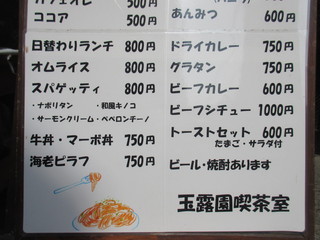 ココア 500円
日替わりランチ 800円
オムライス 800円
スパゲッティ 800円
・ナポリタン ・和風キノコ
・サーモンクリーム・ペペロンチーノ
牛丼・マーボ丼 750円
海老ピラフ 750円
あんみつ 600円
ドライカレー 750円
グラタン 750円
ビーフカレー 600円
ビーフシチュー 1000円
トーストセット 600円
たまご・サラダ付
ビール・焼酎あります
玉露園喫茶室